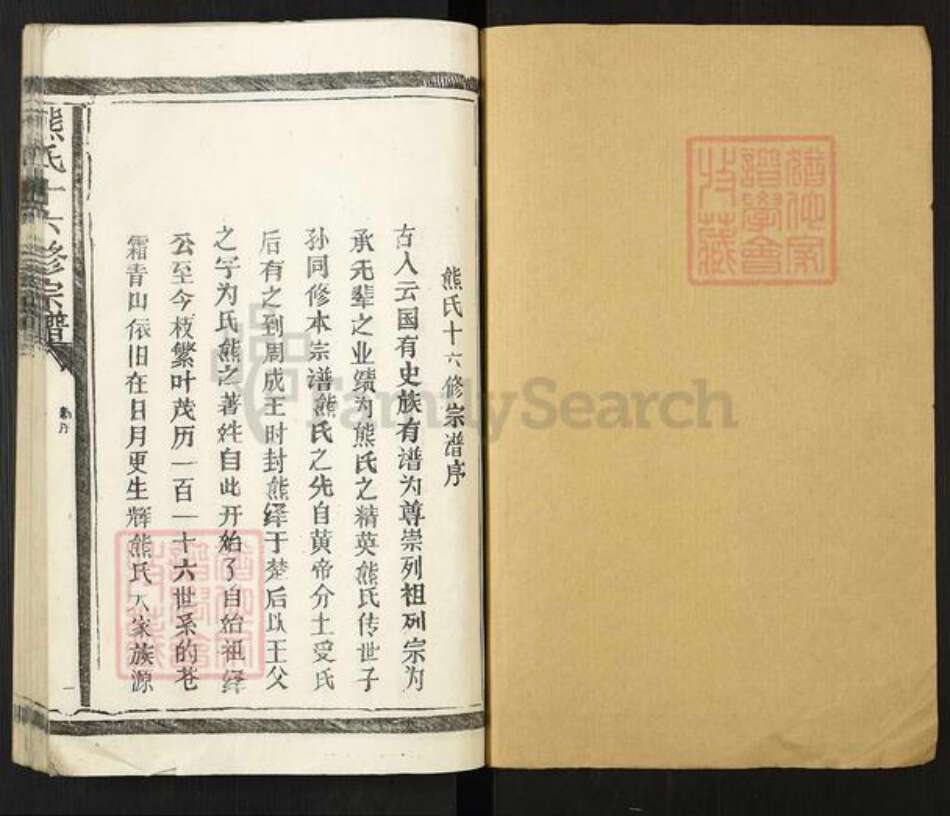 熊氏十六修宗谱序
古人云国有史族有谱为尊崇列祖列宗为
承先辈之业绩为熊氏之精英熊氏传世子
孙同修本宗谱熊氏之先自黄帝分土受氏
后有之到周成王时封熊绎于楚后以王父
之字为氏熊之著姓自此开始了自始祖绎
公至今枝繁叶茂历一百一十六世系的苍
霜青山依旧在日月更生辉熊氏大家族源
熊氏十六修宗谱
一
FamilySearch